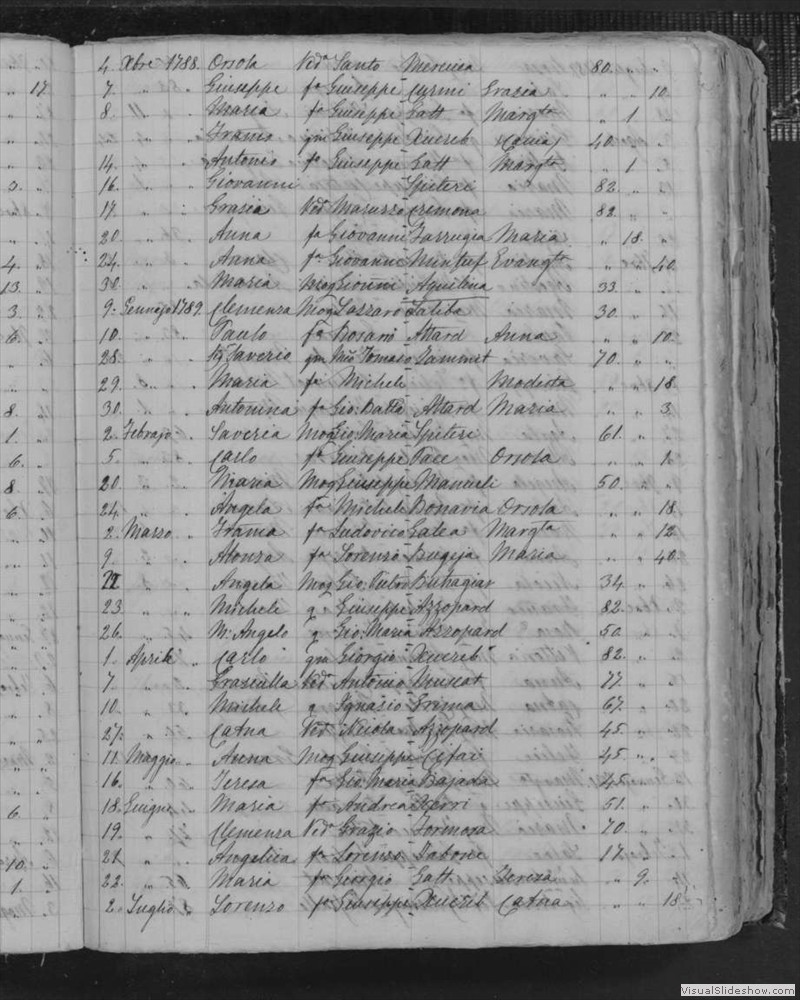 17
4. Xbre 1788. Orsola Vidª Santo Mercieca 80. " "
7. " " Giuseppe fº Giuseppe Curmi Grazia " " 10.
8. " " Maria fª Giuseppe Gatt Margta " 1 "
" " Franco qm Giuseppe Xuereb 40. " "
14. " " Antonio fº Giuseppe Gatt Margta " 1 "
3. 16. " " Giovanni Spiteri 82. " "
17. " " Grazia Vidª Cremona 82. " "
20. " " Anna fª Giovanni Farrugia Maria " 18. "
4. 24. " " Anna fª Giovanni Evangta " " 40.
13. 30. " " Maria Mog Gioanni Aquilina 33. " "
3. 9. Gennajo 1789. Clemenza Mog Lazzaro Saliba 30. " "
6. 10. " " Paulo fº Rosario Attard Anna " " 10.
28. " " Saverio qm Tomaso Zammit 70. " "
29. " " Maria fª Michele Modesta " " 18.
8. 30. " " Antonina fª Gio: Batta Attard Maria " " 3.
1. 2. Febrajo " Saveria Mog Gio: Maria Spiteri 61. " "
6. 5. " " Carlo fº Giuseppe Pace Orsola " " 1.
8. 20. " " Maria Mog Giuseppe Manueli 50. " "
6. 24. " " Angela fª Michele Bonavia Orsola " " 18.
2. Marzo " fª Ludovico Galea Margta " " 12.
9. " " Alonza fª Lorenzo Bugeja Maria " " 40.
22 " " Angela Mog Gio: Buhagiar 34. " "
23. " " Michele q Giuseppe Azzopard 82. " "
26. " " M: Angelo q Gio: Maria Azzopard 50. " "
1. Aprile " Carlo qm Giorgio Xuereb 82. " "
7. " " Graziulla Vidª Antonio Muscat 77. " "
10. " " Michele q Ignazio Grima 67. " "
27. " " Catna Vidª Nicola Azzopard 45. " "
11. Maggio " Anna Mog Giuseppe Cefai 45. " "
16. " " Teresa fª Gio: Maria Bajada 45. " "
6. 18. Guigno " Maria fª Andrea Xerri 51. " "
19. " " Clemenza Vidª Grazio Formosa 70. " "
10. 21. " " Angelica fª Lorenzo Dabone 17. " "
1. 22. " " Maria fª Giorgio Gatt Tereza " 9. "
2. Luglio " Lorenzo fº Giuseppe Xuereb Catna " " 18.
VisualSlideshow.com